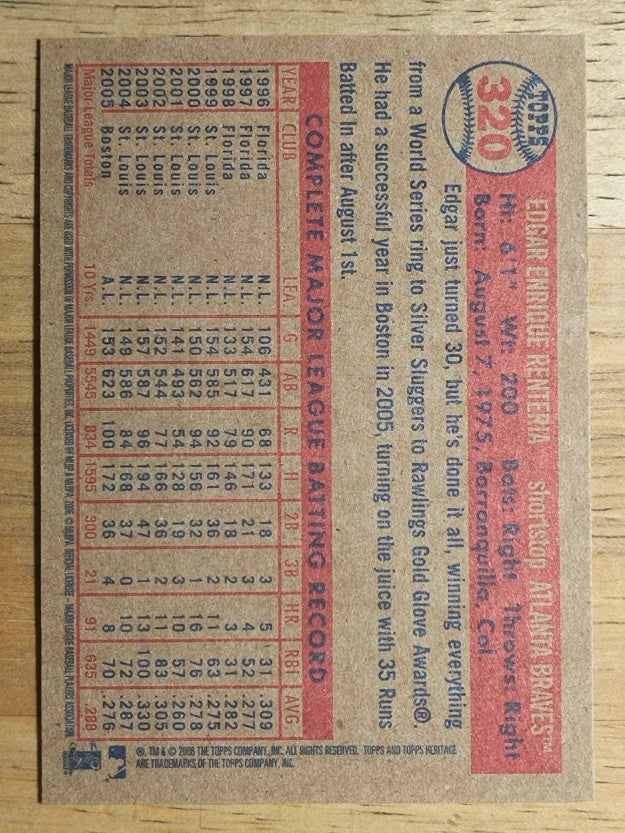 TOPPS
320
EDGAR ENRIQUE RENTERIA shortstop ATLANTA BRAVES™
Ht: 6'1" Wt: 200 Bats: Right Throws: Right
Born: August 7, 1975, Barranquilla, Col.
Edgar just turned 30, but he's done it all, winning everything
from a World Series ring to Silver Sluggers to Rawlings Gold Glove Awards®.
He had a successful year in Boston in 2005, turning on the juice with 35 Runs
Batted In after August 1st.
COMPLETE MAJOR LEAGUE BATTING RECORD
YEAR CLUB LEA. G AB R H 2B 3B HR RBI AVG
1996 Florida N.L. 106 431 68 133 18 3 5 31 .309
1997 Florida N.L. 154 617 90 171 21 3 4 52 .277
1998 Florida N.L. 133 517 79 146 18 2 3 31 .282
1999 St. Louis N.L. 154 585 92 161 36 2 11 63 .275
2000 St. Louis N.L. 150 562 94 156 32 1 16 76 .278
2001 St. Louis N.L. 141 493 54 128 19 3 10 57 .260
2002 St. Louis N.L. 152 544 77 166 36 2 11 83 .305
2003 St. Louis N.L. 157 587 96 194 47 1 13 100 .330
2004 St. Louis N.L. 149 586 84 168 37 0 10 72 .287
2005 Boston A.L. 153 623 100 172 36 4 8 70 .276
Major League Totals 10 Yrs. 1449 5545 834 1595 300 21 91 635 .288
®, TM & © 2006 THE TOPPS COMPANY, INC. ALL RIGHTS RESERVED. TOPPS AND TOPPS HERITAGE
ARE TRADEMARKS OF THE TOPPS COMPANY, INC.
MAJOR LEAGUE BASEBALL TRADEMARKS AND COPYRIGHTS ARE USED WITH PERMISSION OF MAJOR LEAGUE BASEBALL PROPERTIES, INC. © MLBPA OFFICIAL LICENSEE - MAJOR LEAGUE BASEBALL PLAYERS ASSOCIATION.